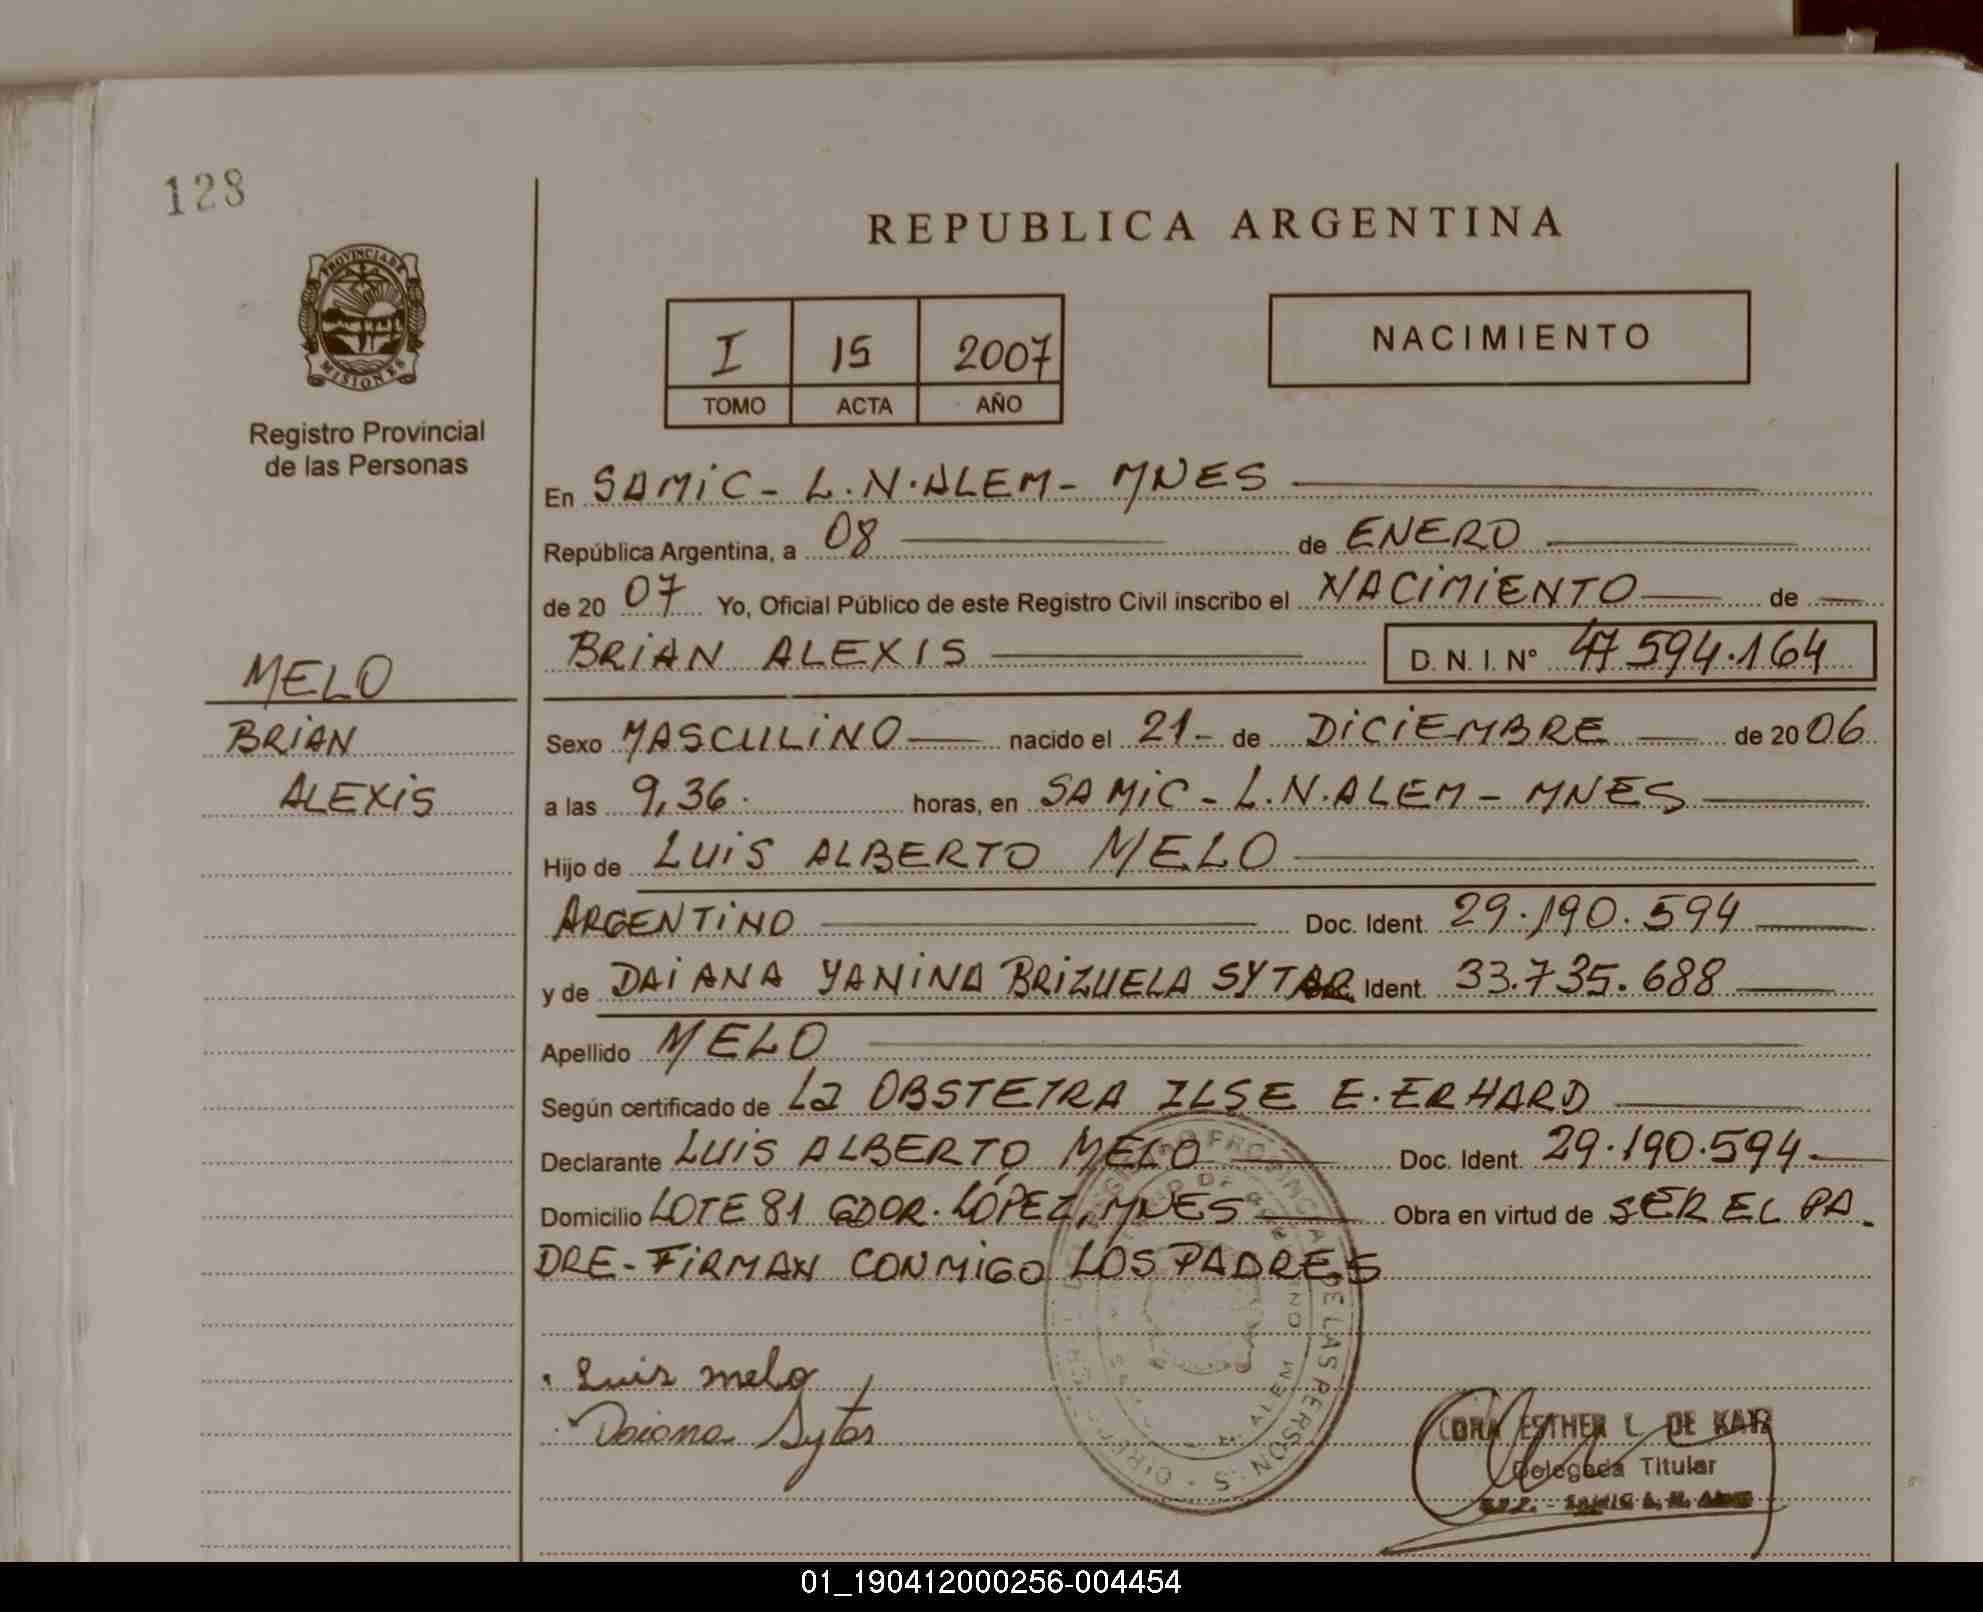 128
REPUBLICA ARGENTINA
PROVINCIA DE
MISIONES
Registro Provincial
de las Personas
I 15 2007
TOMO ACTA AÑO
NACIMIENTO
En SAMIC - L.N.ALEM - MNES
República Argentina, a 08 de ENERO
de 20 07 Yo, Oficial Público de este Registro Civil inscribo el NACIMIENTO de
BRIAN ALEXIS D. N. I. Nº 47594.164
MELO
BRIAN
ALEXIS
Sexo MASCULINO nacido el 21 - de DICIEMBRE de 20 06
a las 9,36. horas, en SAMIC - L.N.ALEM - MNES
Hijo de LUIS ALBERTO MELO
ARGENTINO Doc. Ident. 29.190.594
y de DAIANA YANINA BRIZUELA SYTAR Ident. 33.735.688
Apellido MELO
Según certificado de La OBSTETRA ILSE E. ERHARD
Declarante LUIS ALBERTO MELO Doc. Ident. 29.190.594
Domicilio LOTE 81 GDOR. LÓPEZ, MNES Obra en virtud de SER EL PA
DRE - FIRMAN CONMIGO LOS PADRES
Luis melo
Daiana Sytar
ESTHER L. DE KATZ
Delegada Titular
01_190412000256-004454